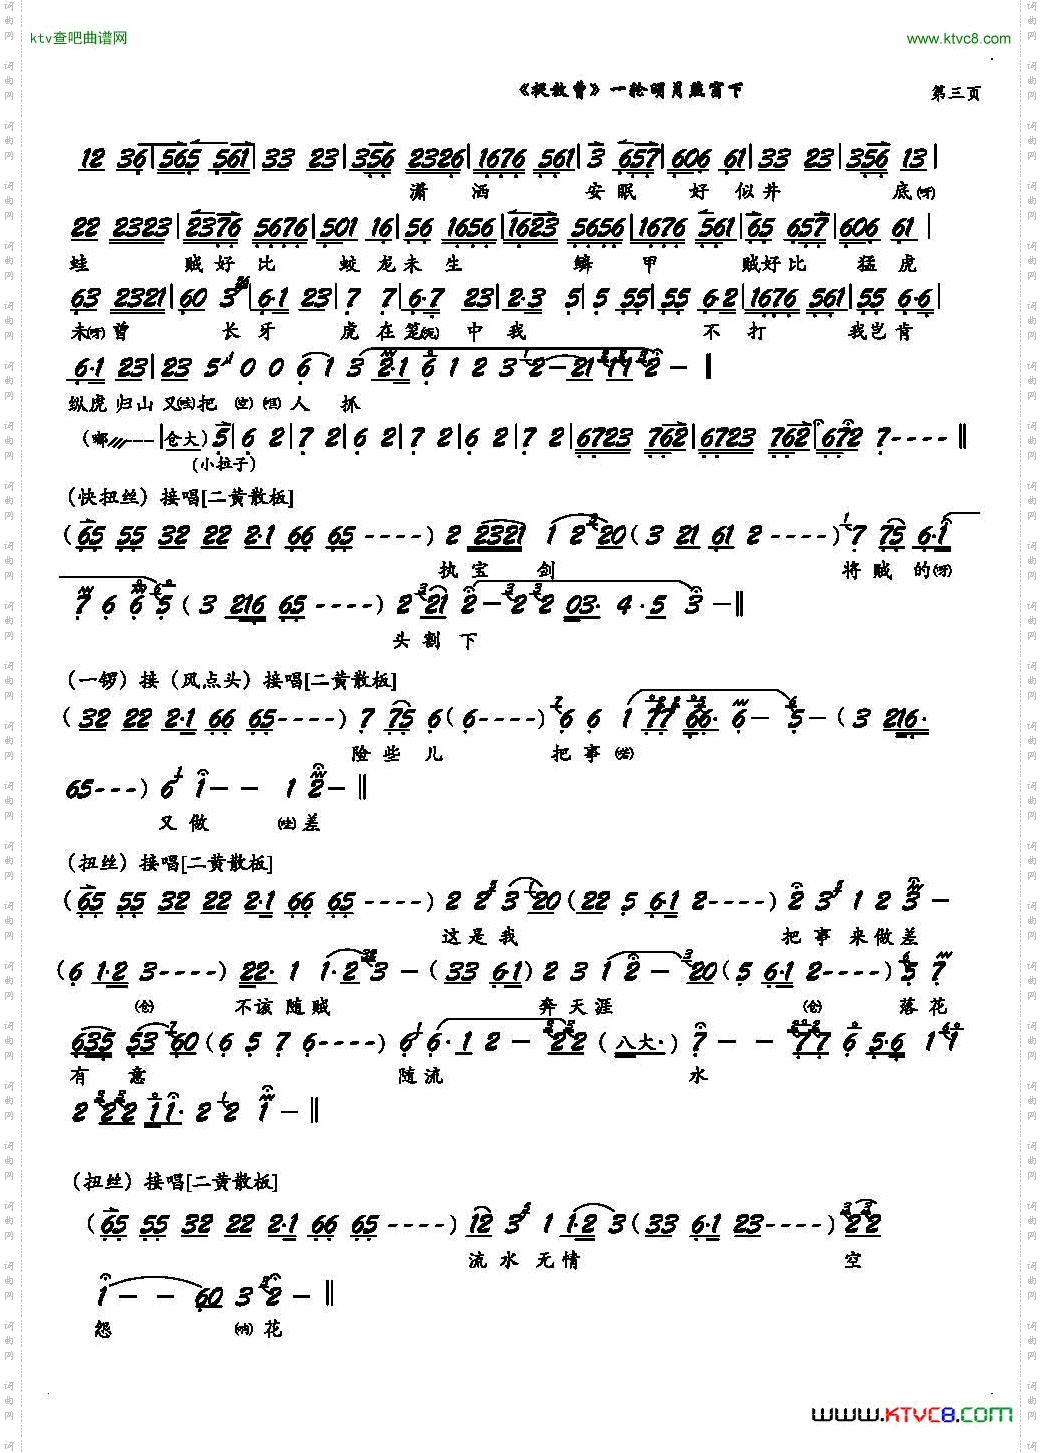 ktv查吧曲谱网
www.ktvc8.com
《捉放曹》一轮明月照窗下
第三页
12 36|565 561|33 23|356 2326|1676 561|3 657|606 61|33 23|356 13|
潇 洒 安 眠 好 似 井 底(呀)
22 2323|2376 5676|501 16|56 1656|1623 5656|1676 561|65 657|606 61|
蛙 贼 好 比 蛟 龙 未 生 鳞 甲 贼 好 比 猛 虎
63 2321|60 3|6·1 23|7 7|6·7 23|2·3 5|5 55|55 6·2|1676 561|55 6·6|
未(呀)曾 长 牙 虎 在 笼 中 我 不 打 我 岂 肯
6·1 23|23 5 0 0 6 1 3 2·1 6 1 2 3 2-21 11 2-‖
纵虎 归山 又 把 人 抓
(嘟---|仓大)5|6 2|7 2|6 2|7 2|6 2|7 2|6723 762|6723 762|672 7----‖
(小拉子)
(快扭丝)接唱[二黄散板]
(65 55 32 22 2·1 66 65----)2 2321 1 2 20(3 21 61 2----)7 75 6·1
执 宝 剑 将 贼 的(呀)
7 6 6 5(3 216 65----)2 21 2-2 2 03· 4·5 3-‖
头 割 下
(一锣)接(风点头)接唱[二黄散板]
(32 22 2·1 66 65----)7 75 6(6----)6 6 1 77 66· 6- 5-(3 216·
险 些 儿 把 事
65---)6 1-- 1 2-‖
又 做 差
(扭丝)接唱[二黄散板]
(65 55 32 22 2·1 66 65----)2 2 3 20(22 5 6·1 2----)2 3 1 2 3-
这 是 我 把 事 来 做 差
(6 1·2 3----)22· 1 1·2 3-(33 6·1)2 3 1 2-20(5 6·1 2----)5 7
(仓) 不该随贼 奔 天 涯 (仓) 落 花
635 53 60(6 5 7 6----)6 6·1 2-22(八大·)7-- 77 6 5·6 11
有 意 随 流 水
2 22 11· 2 2 1-‖
(扭丝)接唱[二黄散板]
(65 55 32 22 2·1 66 65----)12 3 1 1·2 3(33 6·1 23----)22
流 水 无 情 空
1-- 60 3 2-‖
怨 花
www.KTVC8.com